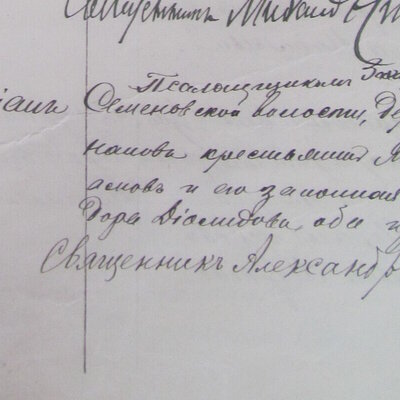 Священникъ Михаил
Псаломщикъ
Семеновской волости, Де
нановъ крестьянинъ
асновъ и его законная
дора Діомидова, оба п
Священникъ Александръ